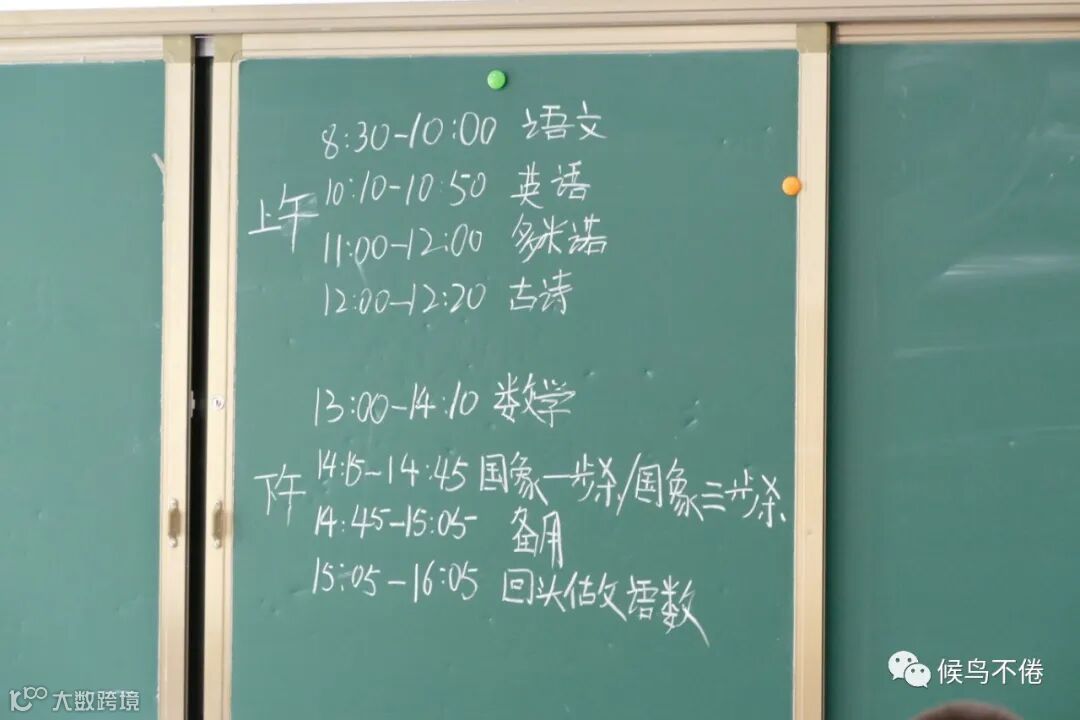 8:30-10:00 语文
上午
10:10-10:50 英语
11:00-12:00 多米诺
12:00-12:20 古诗
13:00-14:10 数学
下午
14:15-14:45 国象一步杀/国象三步杀
14:45-15:05 备用
15:05-16:05 回头做语数
候鸟不倦
大数跨境